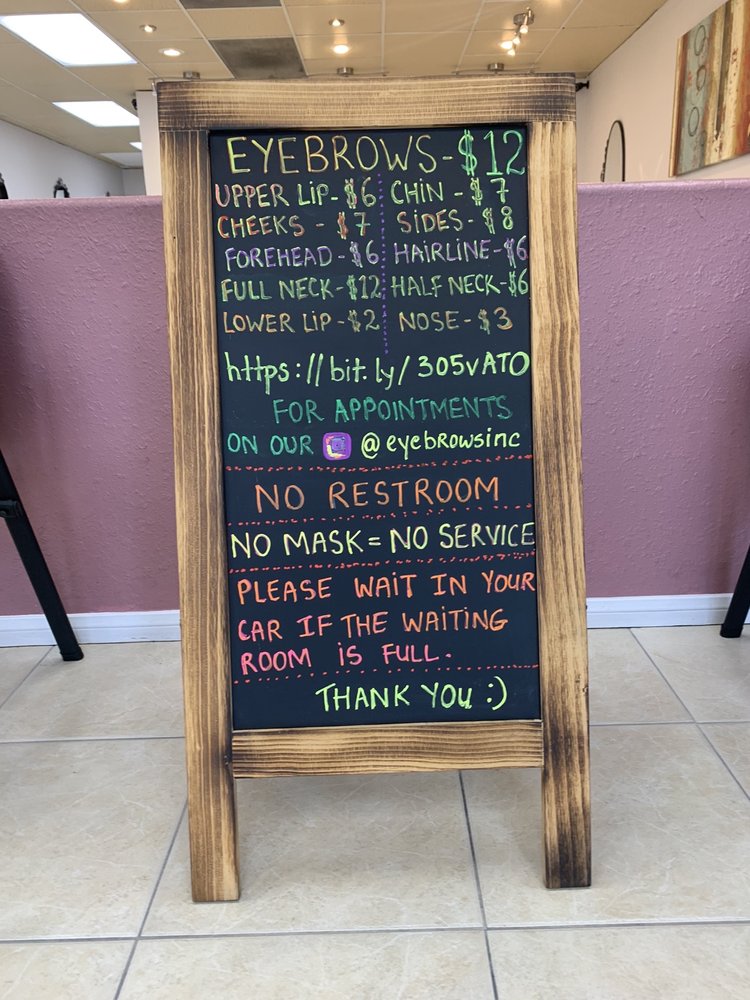 EYEBROWS-$12
UPPER LIP-$6 CHIN - $7
CHEEKS - $7 SIDES-$8
FOREHEAD-$6 HAIRLINE-$6
FULL NECK-$12 HALF NECK-$6
LOWER LIP-$2 NOSE-$3
https://bit.ly/305vATO
FOR APPOINTMENTS
ON OUR @eyebrowsinc
NO RESTROOM
NO MASK = NO SERVICE
PLEASE WAIT IN YOUR
CAR IF THE WAITING
ROOM IS FULL.
THANK YOU :)